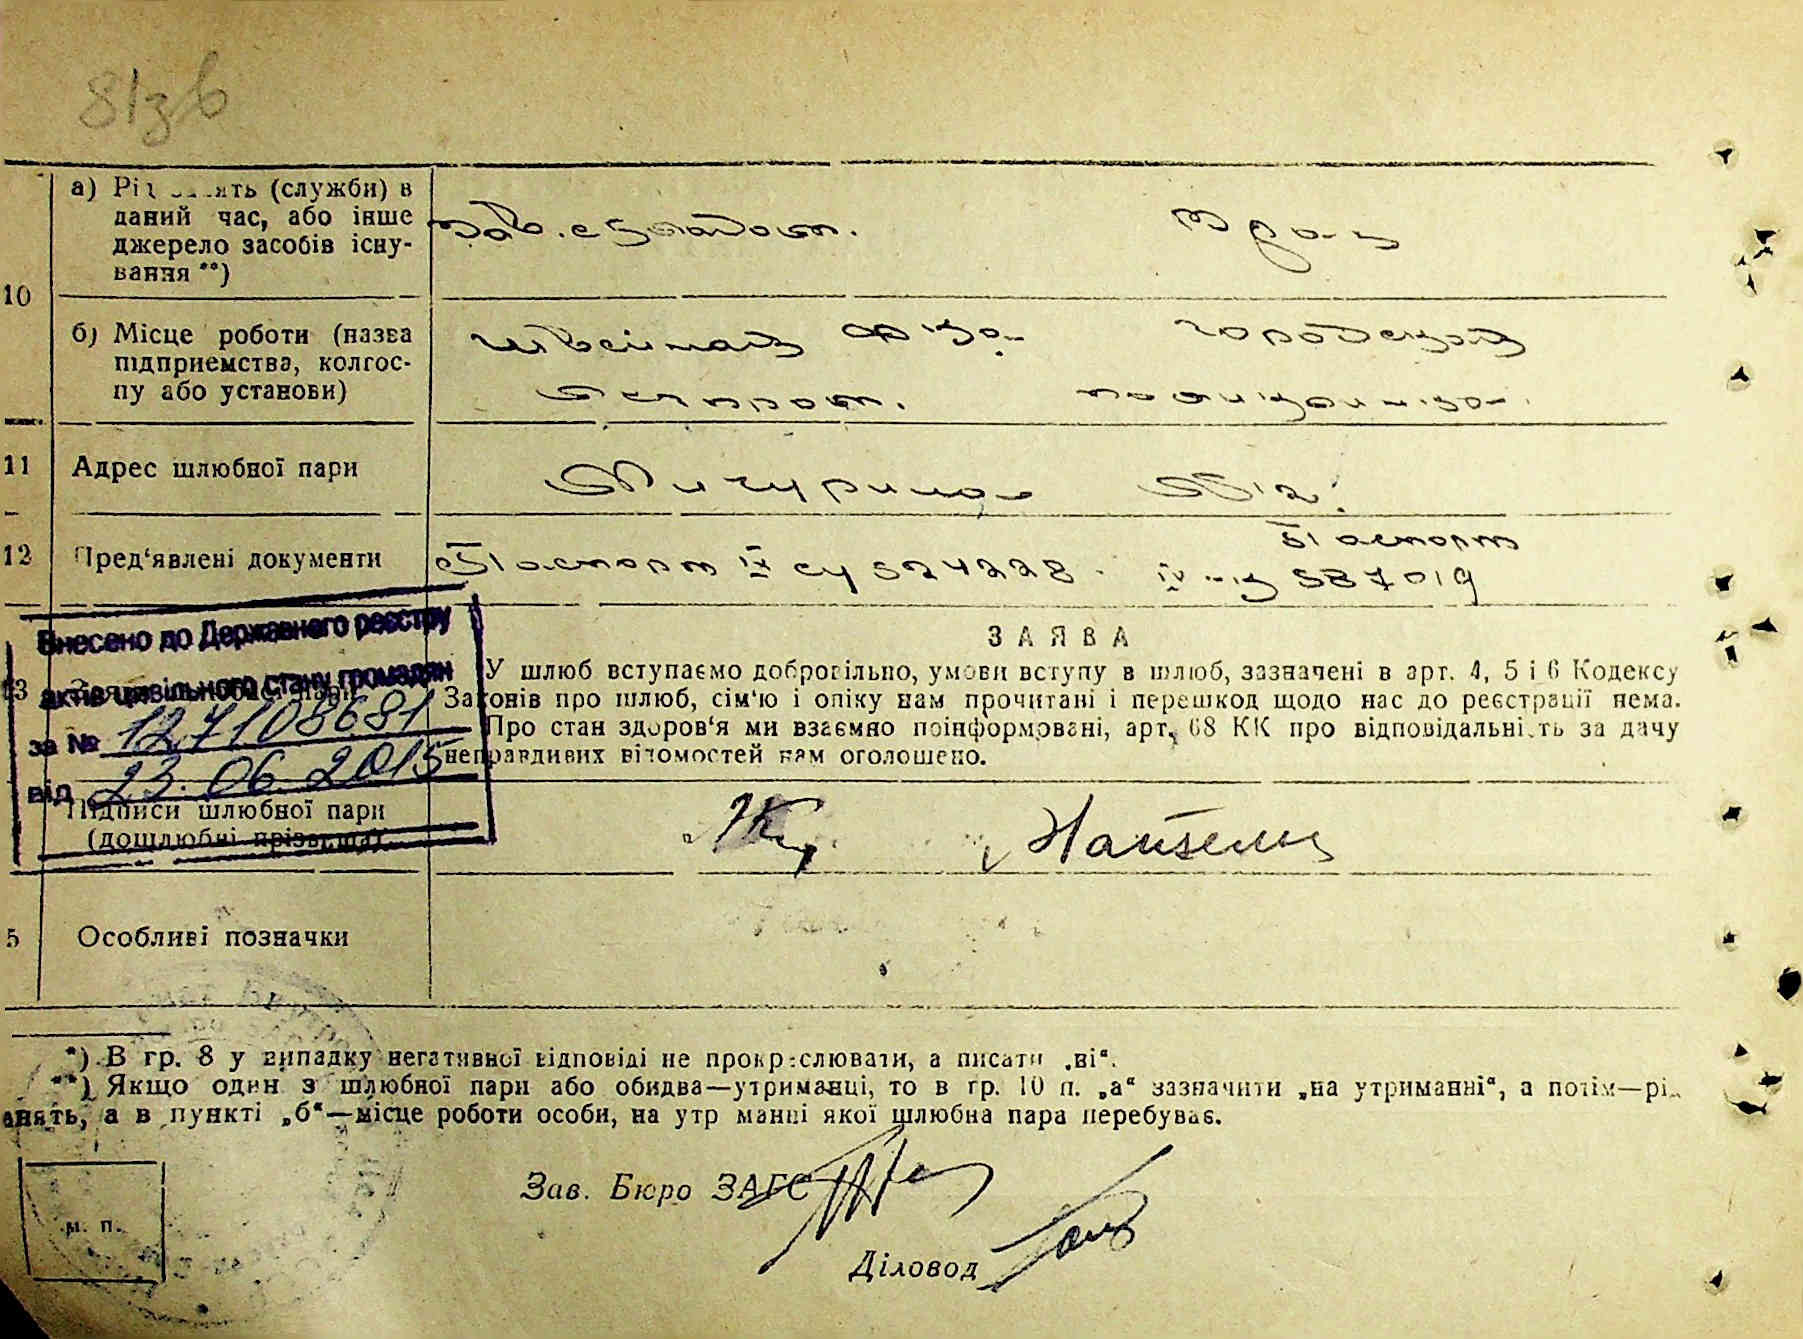 81зв
а) Рід занять (служби) в
даний час, або інше
джерело засобів існу-
вання **)
Зав. складом.
Врач
10
б) Місце роботи (назва
підприємства, колгос-
пу або установи)
Швейная ф-ка
Городская
поликлиника.
11
Адрес шлюбної пари
Мичурина
12
Пред‘явлені документи
Паспорт IX СУ 524228.
Паспорт
587019
Внесено до Державного реєстру
актів цивільного стану громадян
за № 127108681
від 23.06.2015
13
ЗАЯВА
У шлюб вступаємо добровільно, умови вступу в шлюб, зазначені в арт. 4, 5 і 6 Кодексу
Законів про шлюб, сім‘ю і опіку нам прочитані і перешкод щодо нас до реєстрації нема.
Про стан здоров‘я ми взаємно поінформовані, арт. 68 КК про відповідальність за дачу
неправдивих відомостей нам оголошено.
Підписи шлюбної пари
(дошлюбні прізвища)
5
Особливі позначки
*) В гр. 8 у випадку негативної відповіді не прокреслювати, а писати „ні“.
**) Якщо один з шлюбної пари або обидва—утриманці, то в гр. 10 п. „а“ зазначити „на утриманні“, а потім—рід
занять, а в пункті „б“—місце роботи особи, на утриманні якої шлюбна пара перебуває.
Зав. Бюро ЗАГС
м. п.
Діловод